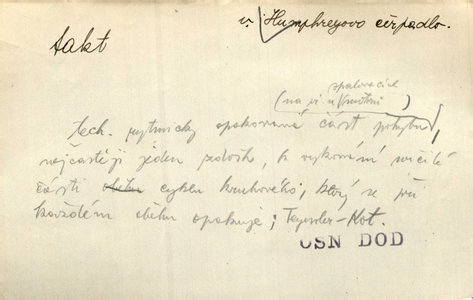 v. Humphreyovo čerpadlo.
takt
spalovacích
(na př. u
tech. rytmicky opakovaná část pohybu,
nejčastěji jeden zdvih, k vykonání určité
části oběhu cyklu kruhového, který se při
každém oběhu opakuje; Teyssler-Kot.
ČSN DOD